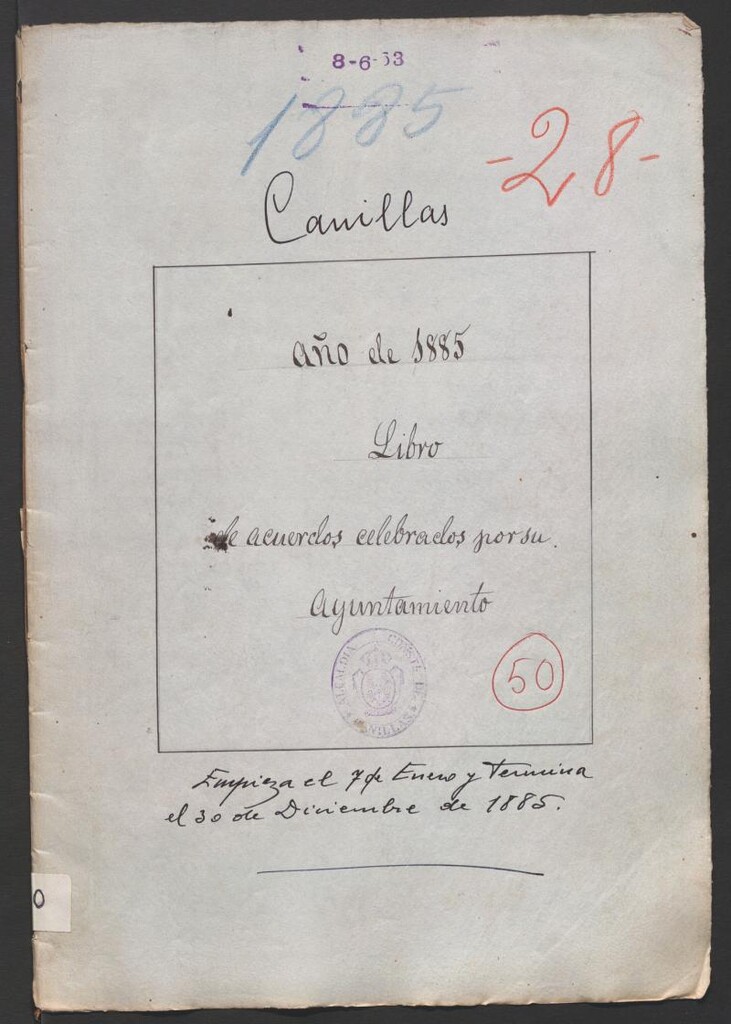 8-6-53
1885
-28-
Canillas
Año de 1885
Libro
de acuerdos celebrados por su
Ayuntamiento
ALCALDIA
CANILLAS
50
Empieza el 7 de Enero y Termina
el 30 de Diciembre de 1885.
0